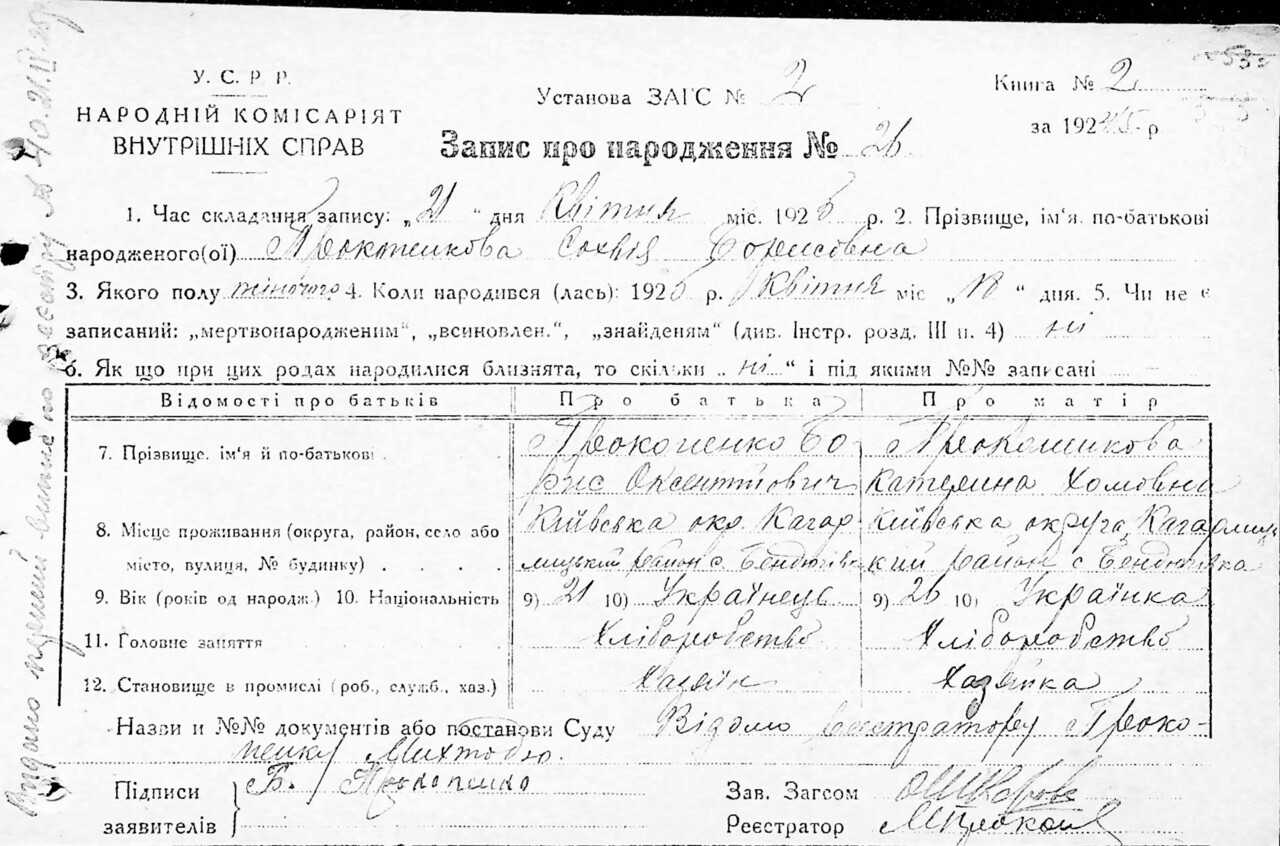 У. С. Р. Р.
НАРОДНІЙ КОМІСАРІЯТ
ВНУТРІШНІХ СПРАВ
Установа ЗАГС № 2
Книга № 2
за 1925 р.
Запис про народження № 26
1. Час складання запису: „21“ дня Квітня міс. 1925 р. 2. Прізвище, ім'я, по-батькові
народженого(ої) Прокопенкова Софія Борисовна
3. Якого полу жіночого 4. Коли народився (лась): 1925 р. Квітня міс „18“ дня. 5. Чи не є
записаний: „мертвонародженим“, „всиновлен.“, „знайденям“ (див. Інстр. розд. III п. 4) ні
6. Як що при цих родах народилися близнята, то скільки „ні“ і під якими №№ записані
Відомості про батьків Про батька Про матір
7. Прізвище, ім'я й по-батькові
Прокопенко Бо-
рис Оксентіович
Прокопенкова
Катерина Хомовна
8. Місце проживання (округа, район, село або
місто, вулиця, № будинку)
Київська окр. Кагар-
лицький район с. Бендюгівка
Київська округа, Кагарлиць-
кий район с Бендюгівка
9. Вік (років од народж.) 10. Національність 9) 21 10) Українець 9) 26 10) Українка
11. Головне заняття Хліборобство Хліборобство
12. Становище в промислі (роб., служб., хаз.) Хазяїн Хазяйка
Назви и №№ документів або постанови Суду Відомо реєстратору Проко-
пенку Михтодю.
Підписи
заявителів
Б. Прокопенко
Зав. Загсом
Реєстратор
Видано перший витяг по реєстру № 40. 21.IV 25р